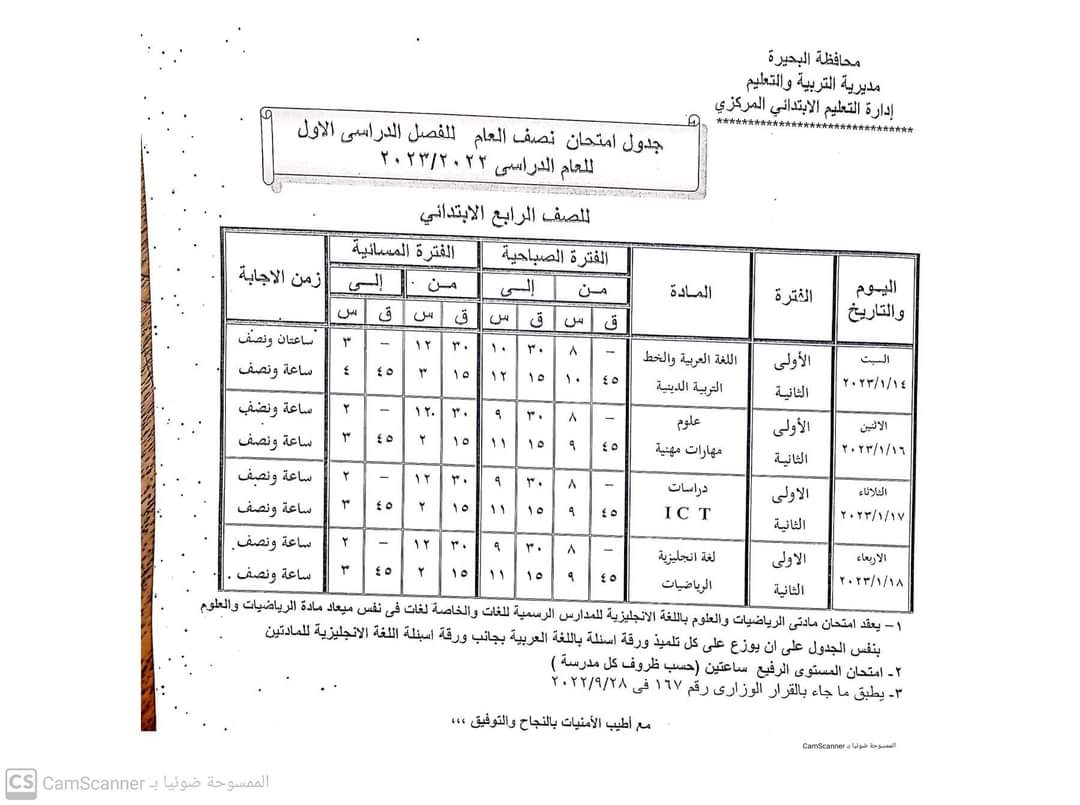 محافظة البحيرة
مديرية التربية والتعليم
إدارة التعليم الابتدائي المركزي
********************************
جدول امتحان نصف العام للفصل الدراسى الاول
للعام الدراسى ٢٠٢٣/٢٠٢٢
للصف الرابع الابتدائي
اليوم والتاريخ الفترة المادة الفترة الصباحية الفترة المسائية زمن الاجابة
من إلى من إلى
ق س ق س ق س ق س
السبت الأولى اللغة العربية والخط – ٨ ٣٠ ١٠ ٣٠ ١٢ – ٣ ساعتان ونصف
٢٠٢٣/١/١٤ الثانية التربية الدينية ٤٥ ١٠ ١٥ ١٢ ١٥ ٣ ٤٥ ٤ ساعة ونصف
الاثنين الأولى علوم – ٨ ٣٠ ٩ ٣٠ ١٢ – ٢ ساعة ونصف
٢٠٢٣/١/١٦ الثانية مهارات مهنية ٤٥ ٩ ١٥ ١١ ١٥ ٢ ٤٥ ٣ ساعة ونصف
الثلاثاء الاولى دراسات – ٨ ٣٠ ٩ ٣٠ ١٢ – ٢ ساعة ونصف
٢٠٢٣/١/١٧ الثانية I C T ٤٥ ٩ ١٥ ١١ ١٥ ٢ ٤٥ ٣ ساعة ونصف
الاربعاء الاولى لغة انجليزية – ٨ ٣٠ ٩ ٣٠ ١٢ – ٢ ساعة ونصف
٢٠٢٣/١/١٨ الثانية الرياضيات ٤٥ ٩ ١٥ ١١ ١٥ ٢ ٤٥ ٣ ساعة ونصف
١– يعقد امتحان مادتى الرياضيات والعلوم باللغة الانجليزية للمدارس الرسمية للغات والخاصة لغات فى نفس ميعاد مادة الرياضيات والعلوم
بنفس الجدول على ان يوزع على كل تلميذ ورقة اسئلة باللغة العربية بجانب ورقة اسئلة اللغة الانجليزية للمادتين
٢- امتحان المستوى الرفيع ساعتين (حسب ظروف كل مدرسة )
٣- يطبق ما جاء بالقرار الوزارى رقم ١٦٧ فى ٢٠٢٢/٩/٢٨
مع أطيب الأمنيات بالنجاح والتوفيق ،،،
الممسوحة ضوئيا بـ CamScanner
CS CamScanner الممسوحة ضوئيا بـ